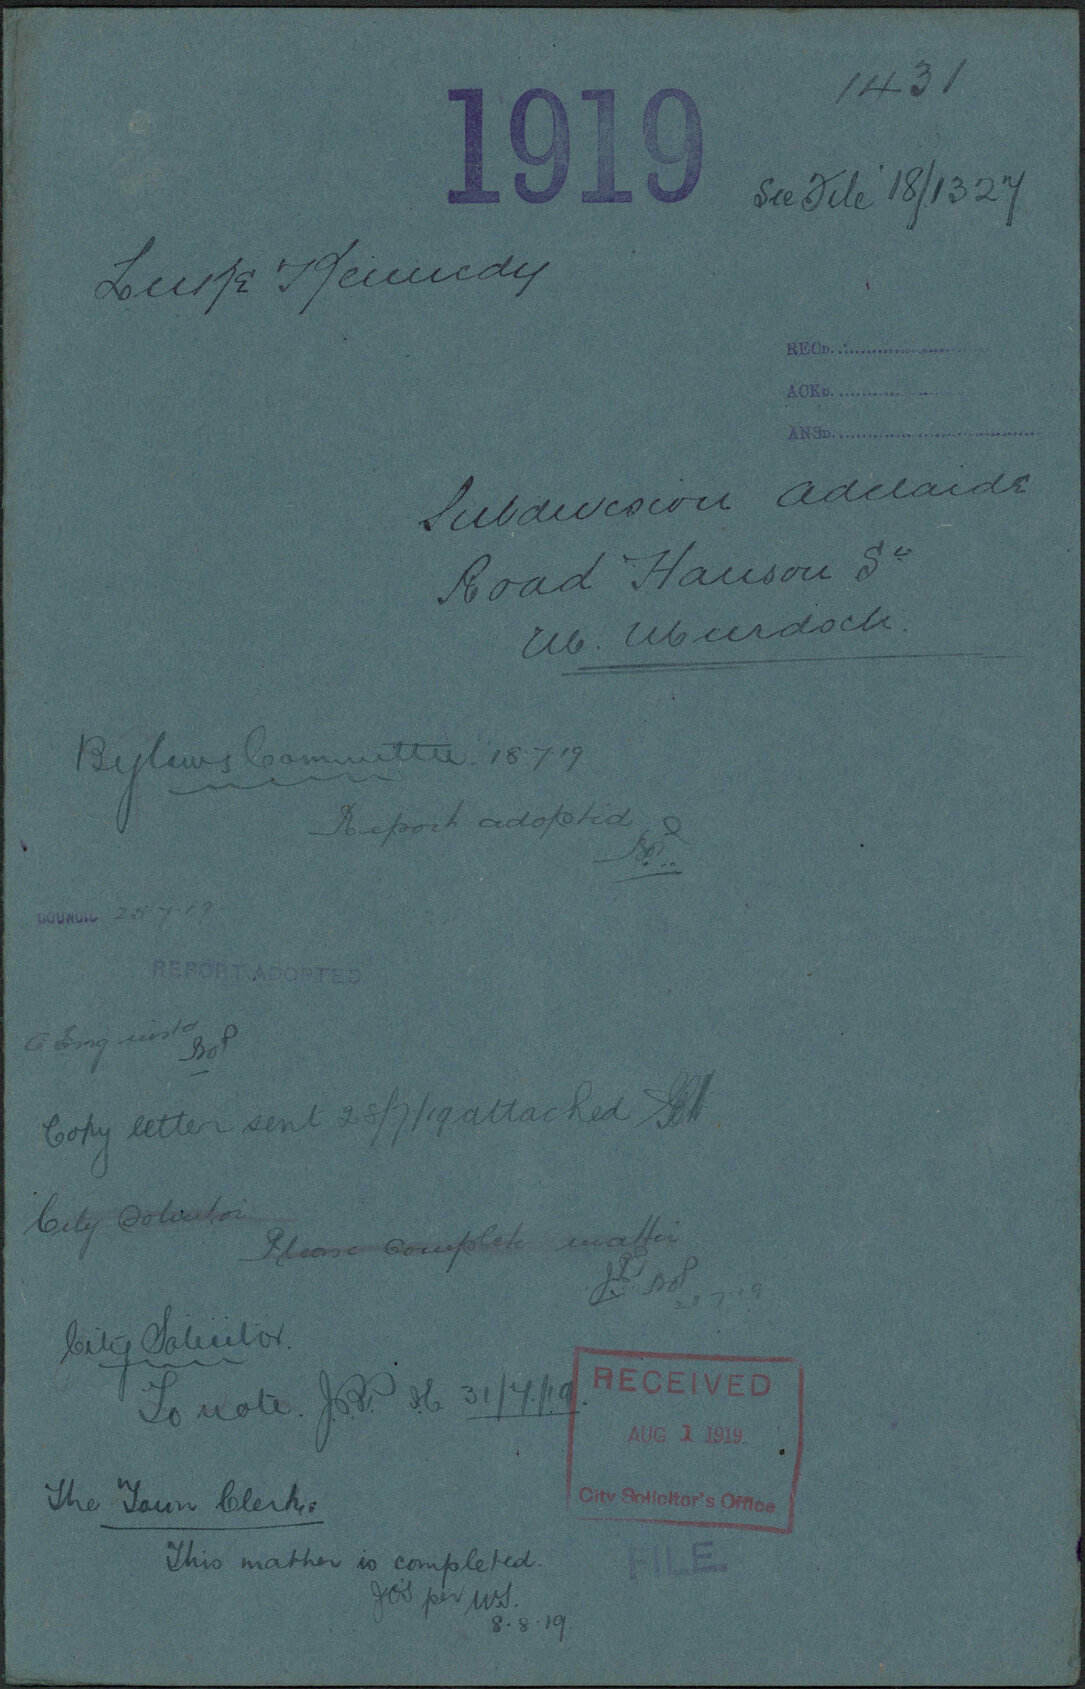 1431
1919
See File 18/1327
Luke & Kennedy
RECD.
ACKD.
ANSD.
Subdivision Adelaide
Road Hanson St
M. Murdoch.
Bylaws Committee 18.7.19
Report adopted
COUNCIL 28 7 19
REPORT ADOPTED
C Eng
Copy letter sent 28/7/19 attached
City Solicitor
Please complete matter
28 7 19
City Solicitor.
To note. 31/7/19.
RECEIVED
AUG 1 1919
City Solicitor's Office
The Town Clerk:
This matter is completed.
JOS per WS.
8.8.19
FILE.